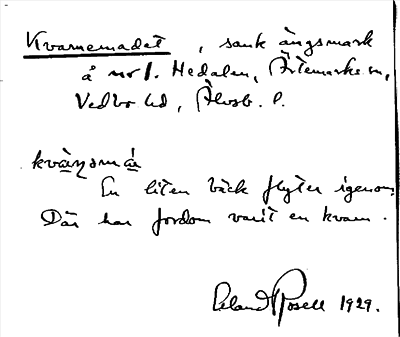 Kvarnemadet, sank ängsmark
å nr 1. Hedalen, Ärtemarks sn,
Vedbo hd, Älvsb. l.
kvàɳəmá
En liten bäck flyter igenom.
Där har fordom varit en kvarn.
Erland Rosell 1929.